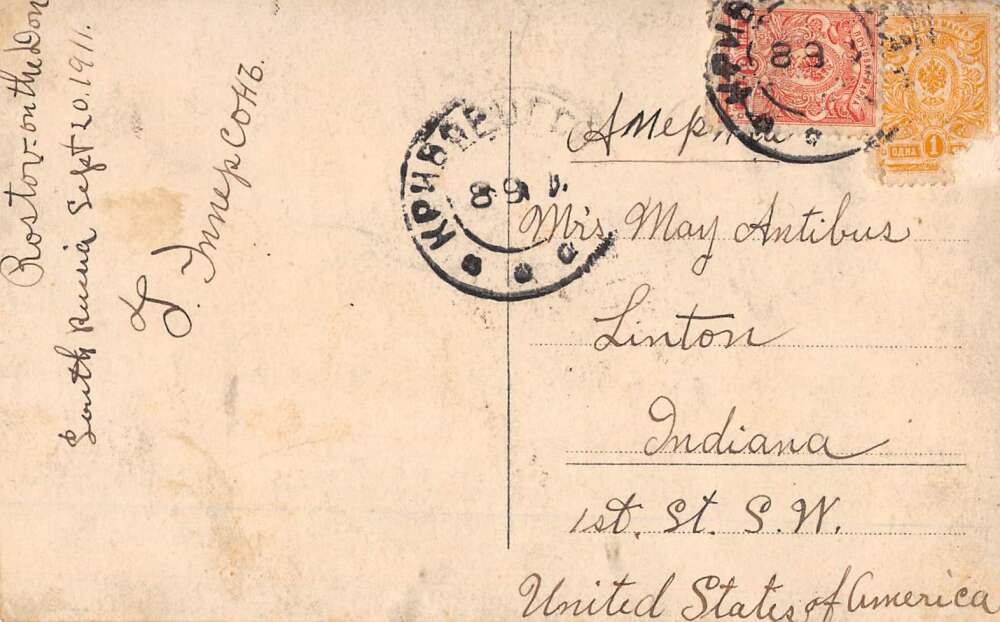 Rostov-on the Don
South Russia Sept 20.1911.
Г. Інперсонъ.
Америка
Mrs May Antibus
Linton
Indiana
1st. St. S.W.
United States of America
ОДНА 1